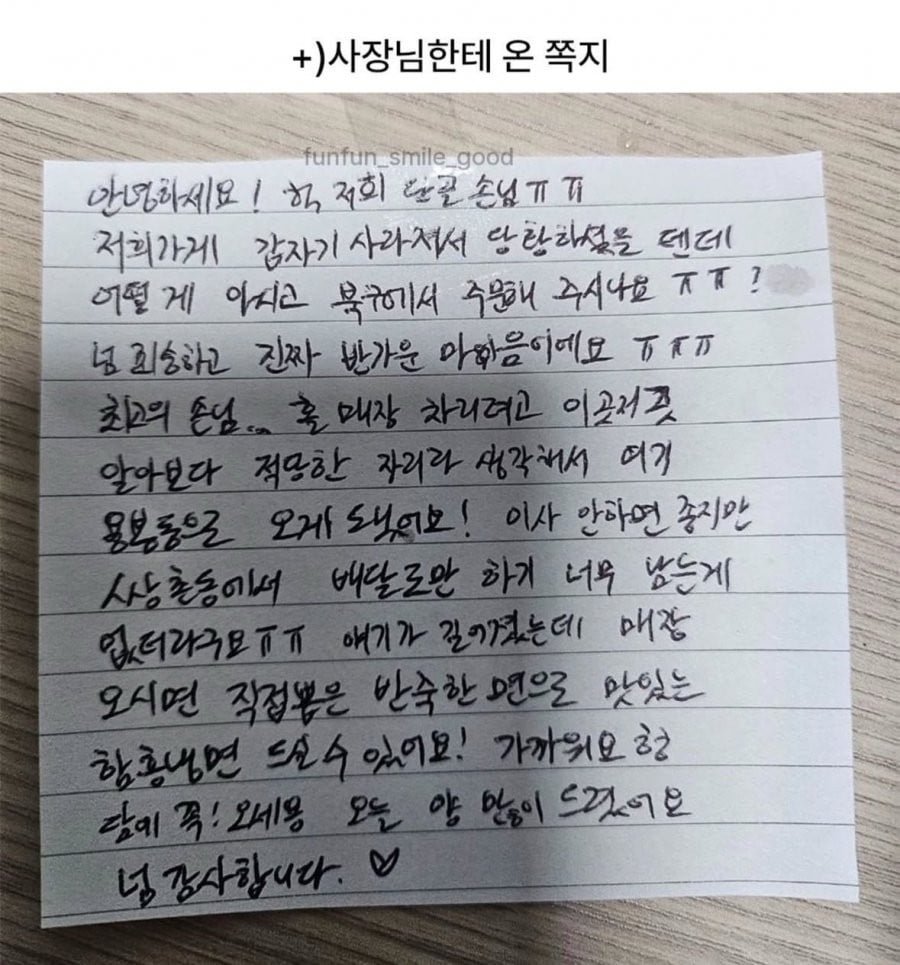 +)사장님한테 온 쪽지
funfun_smile_good
안녕하세요! 헉 저희 단골 손님ㅠㅠ
저희가게 갑자기 사라져서 당황하셨을 텐데
어떻게 아시고 북구에서 주문해 주시나요 ㅠㅠ?
넘 죄송하고 진짜 반가운 마음이에요 ㅠㅠㅠ
최고의 손님... 홀 매장 차리려고 이곳저곳
알아보다 적당한 자리라 생각해서 여기
용봉동으로 오게 됐어요! 이사 안하면 좋지만
에서 배달로만 하기 너무 남는게
없더라구요ㅠㅠ 얘기가 길어졌는데 매장
오시면 직접뽑은 반죽한 면으로 맛있는
함흥냉면 드실 수 있어요! 가까워요 헝
담에 꼭! 오세용 오늘 양 많이 드렸어요
넘 감사합니다. ♡